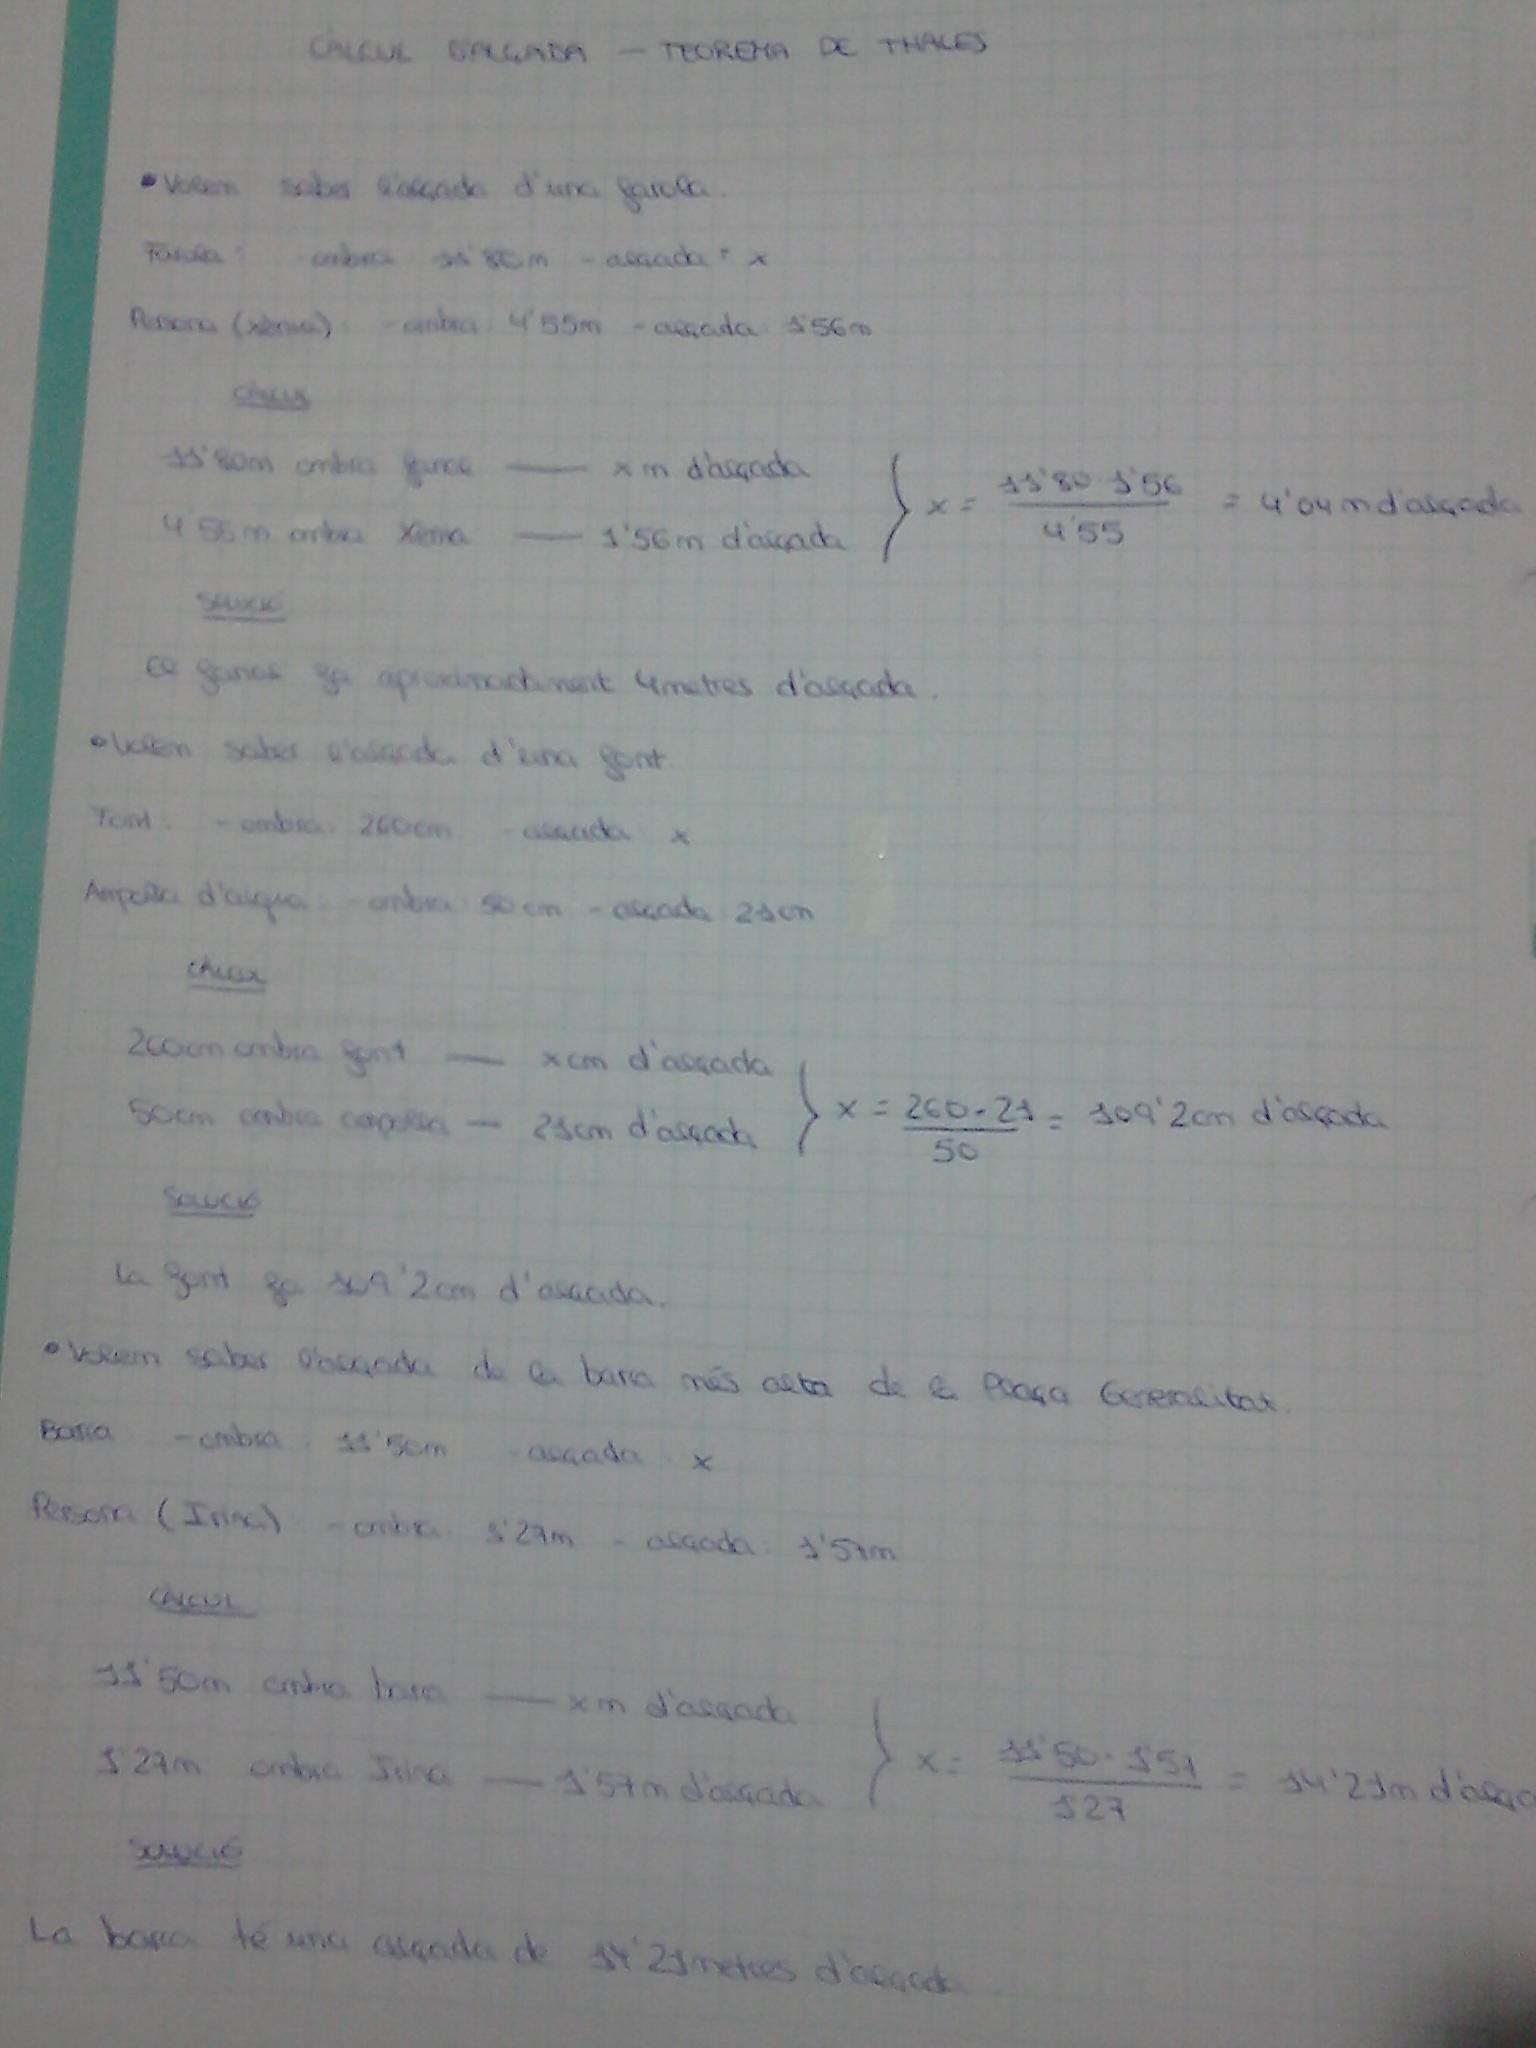 CÀLCUL D'ALÇADA - TEOREMA DE THALES
• Volem saber l'alçada d'una farola.
Farola: - ombra 11'80m - alçada: x
Persona (Xènia): - ombra: 4'55m - alçada: 1'56m
CÀLCUL
11'80m ombra fanal — x m d'alçada
4'55m ombra Xènia — 1'56m d'alçada } x = 11'80·1'56 / 4'55 = 4'04m d'alçada
SOLUCIÓ
El fanal fa aproximadament 4 metres d'alçada.
• Volem saber l'alçada d'una font.
Font: - ombra: 260cm - alçada: x
Ampolla d'aigua: - ombra: 50cm - alçada: 21cm
CÀLCUL
260cm ombra font — x cm d'alçada
50cm ombra ampolla — 21cm d'alçada } x = 260·21 / 50 = 109'2cm d'alçada
SOLUCIÓ
La font fa 109'2cm d'alçada.
• Volem saber l'alçada de la barra més alta de la Plaça Generalitat.
Barra - ombra: 11'50m - alçada: x
Persona (Irina) - ombra: 1'27m - alçada: 1'57m
CÀLCUL
11'50m ombra barra — x m d'alçada
1'27m ombra Irina — 1'57m d'alçada } x = 11'50·1'57 / 1'27 = 14'21m d'alça
SOLUCIÓ
La barra té una alçada de 14'21 metres d'alçada.